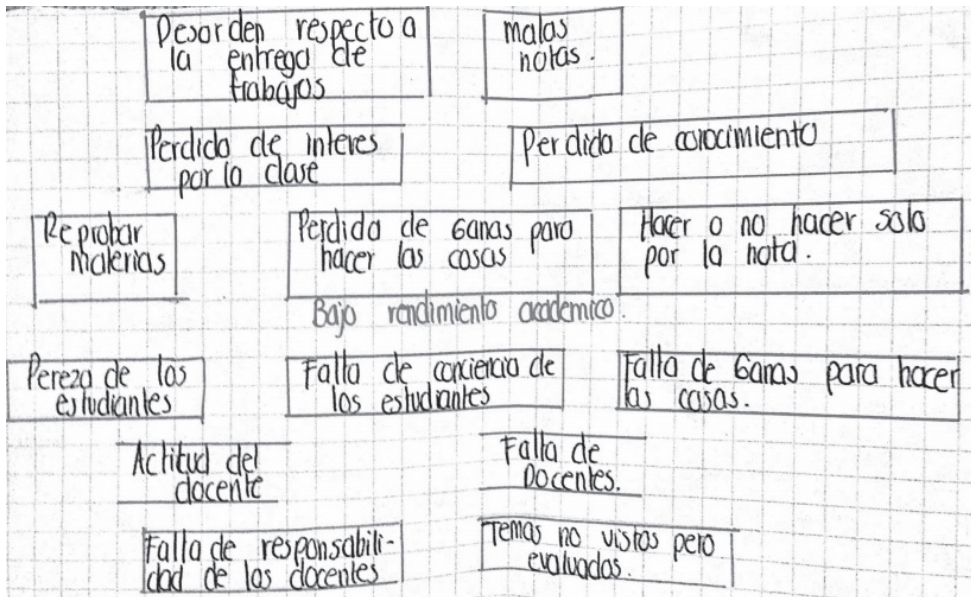 Desorden respecto a
la entrega de
trabajos
malas
notas.
Perdida de interes
por la clase
Perdida de conocimiento
Reprobar
Materias
Perdida de Ganas para
hacer las cosas
Hacer o no hacer solo
por la nota.
Bajo rendimiento academico.
Pereza de los
estudiantes
Falta de conciencia de
los estudiantes
Falta de Ganas para hacer
las cosas.
Actitud del
docente
Falta de
Docentes.
Falla de responsabili-
dad de los docentes
Temas no vistos pero
evaluados.